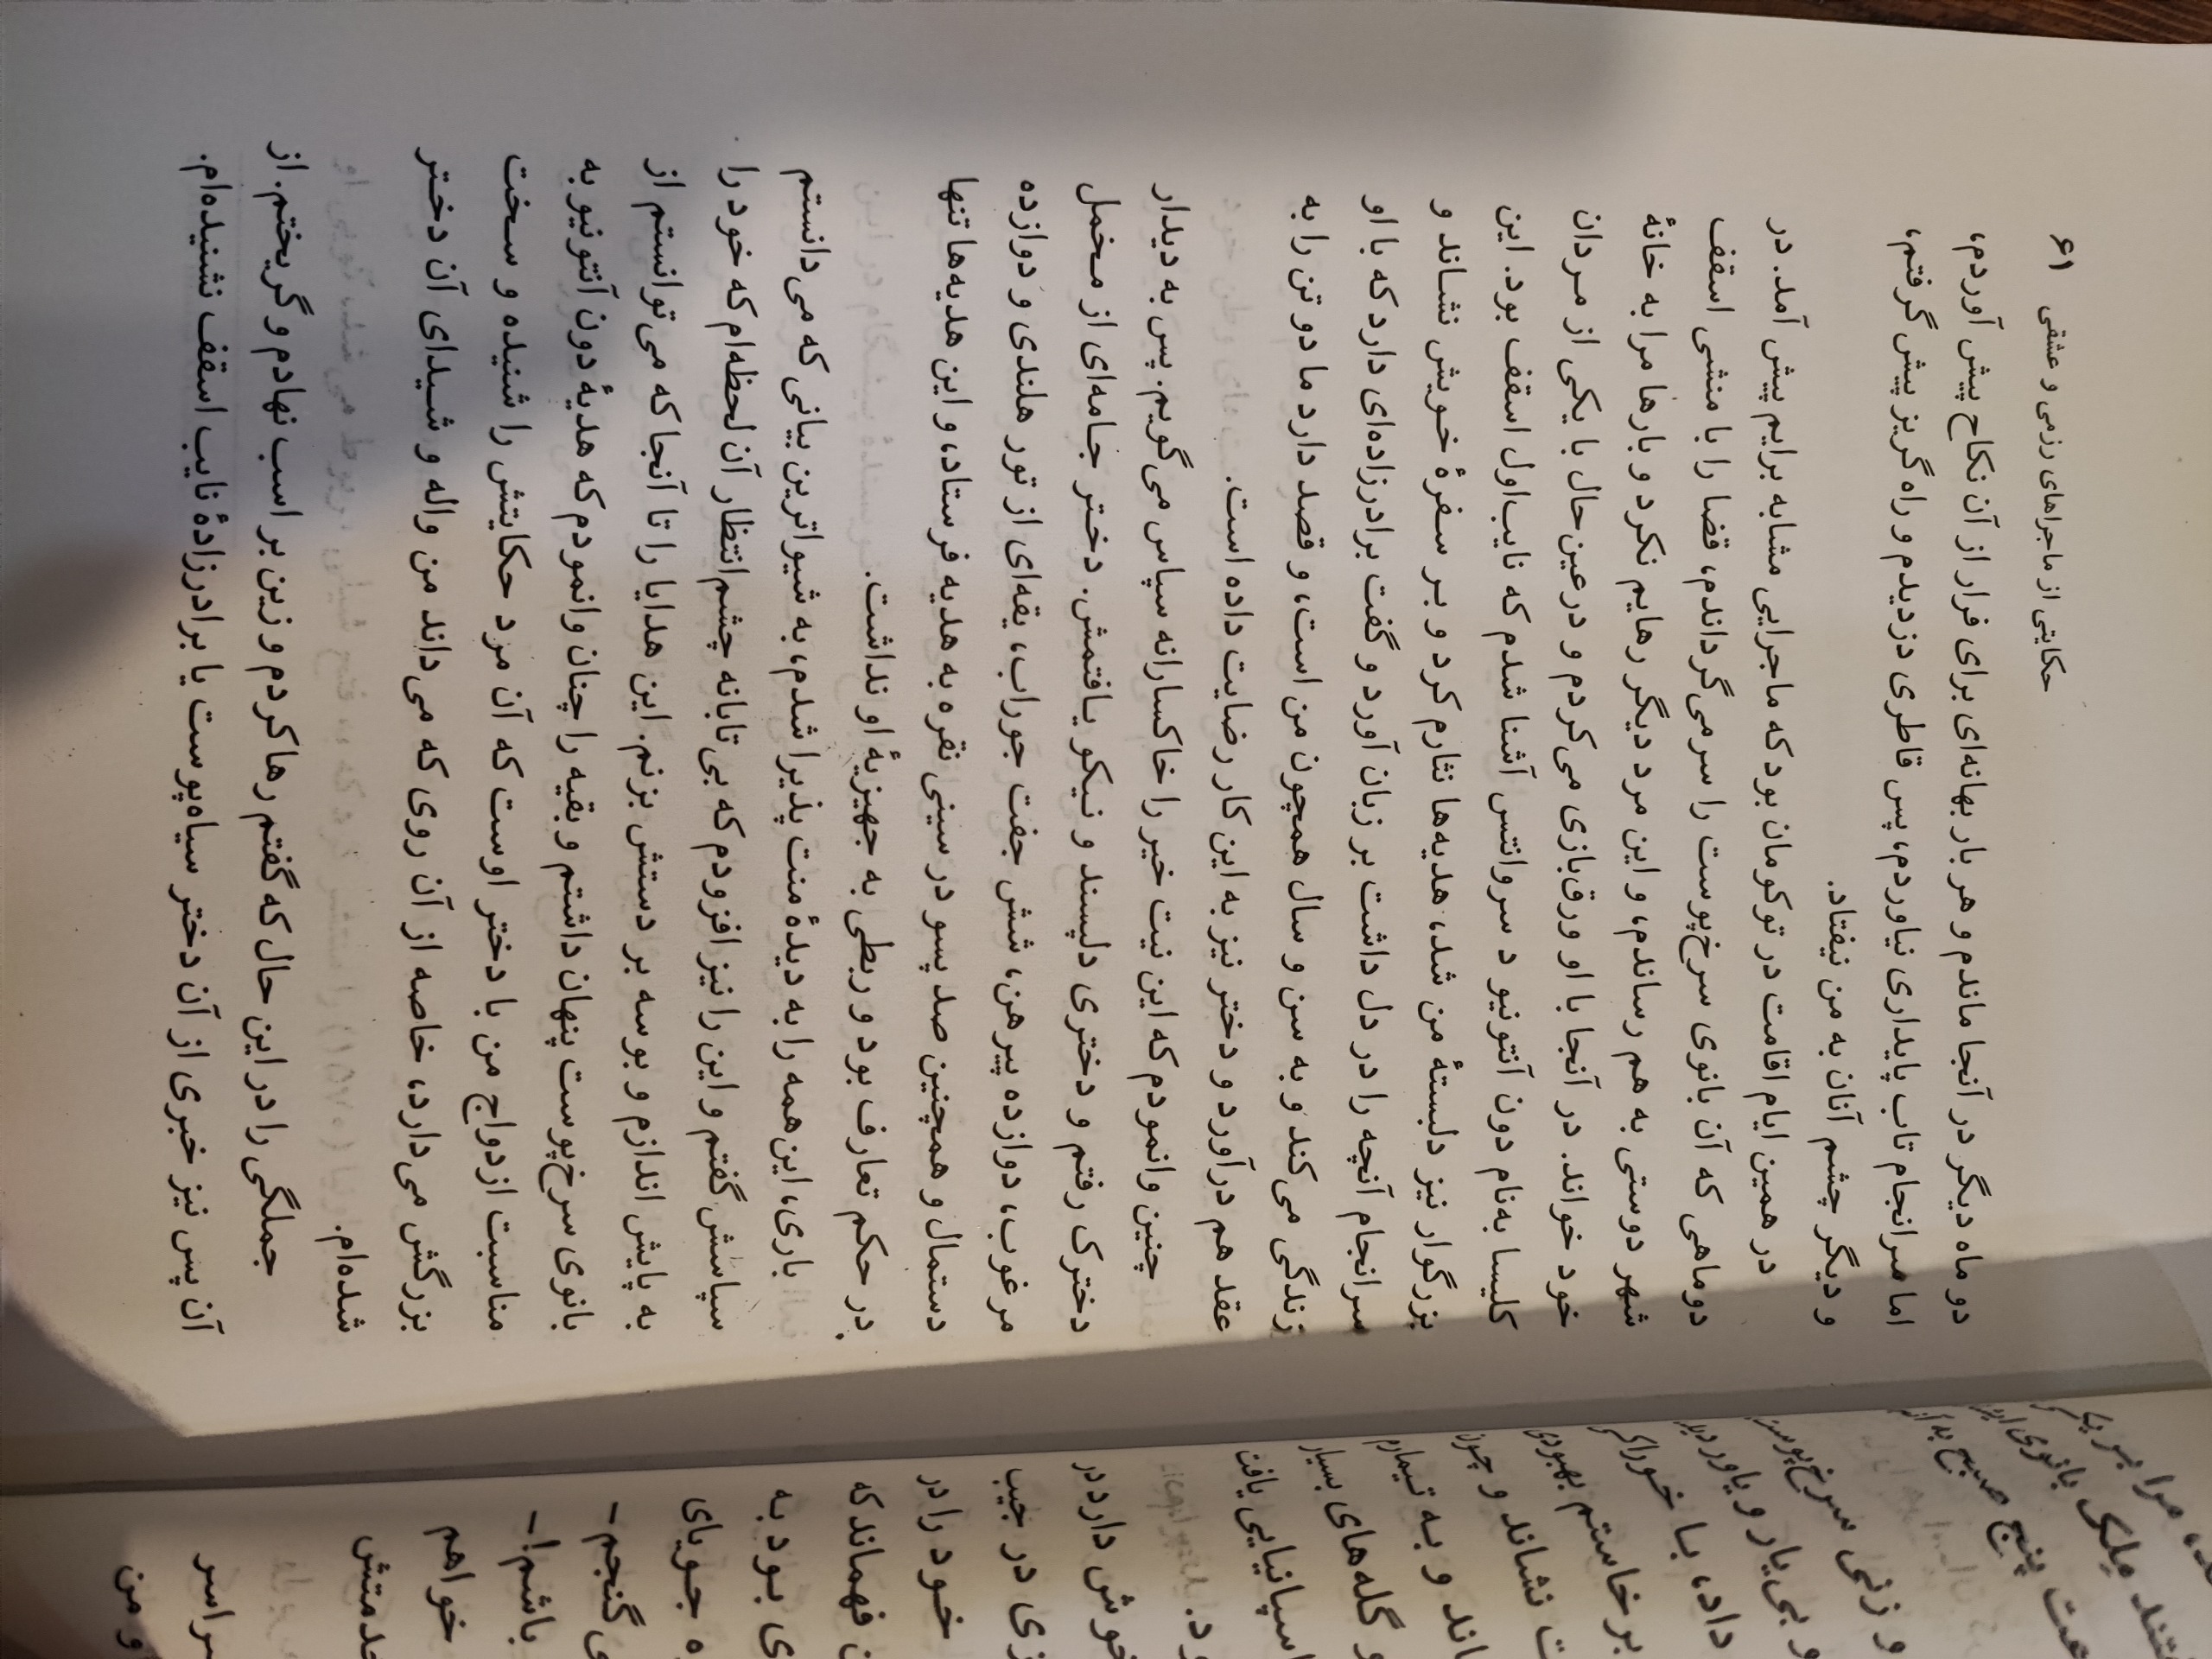 حکایتی از ماجراهای رزمی و عشقی ۶۱
دو ماه دیگر در آنجا ماندم و هر بار بهانه‌ای برای فرار از آن نکاح پیش آوردم،
اما سرانجام تاب پایداری نیاوردم، پس قاطری دزدیدم و راه گریز پیش گرفتم،
و دیگر چشم آنان به من نیفتاد.
در همین ایام اقامت در توکومان بود که ماجرایی مشابه برایم پیش آمد. در
دوماهی که آن بانوی سرخ‌پوست را سر می‌گرداندم، قضا را با منشی اسقف
شهر دوستی به هم رساندم، و این مرد دیگر رهایم نکرد و بارها مرا به خانهٔ
خود خواند. در آنجا با او ورق‌بازی می‌کردم و در عین حال با یکی از مردان
کلیسا به‌نام دون آنتونیو د سروانتس آشنا شدم که نایب‌اول اسقف بود. این
بزرگوار نیز دلبستهٔ من شد، هدیه‌ها نثارم کرد و بر سفرهٔ خویش نشاند و
سرانجام آنچه را در دل داشت بر زبان آورد و گفت برادرزاده‌ای دارد که با او
زندگی می‌کند و به سن و سال همچون من است، و قصد دارد ما دو تن را به
عقد هم درآورد و دختر نیز به این کار رضایت داده است.
چنین وانمودم که این نیت خیر را خاکسارانه سپاس می‌گویم. پس به دیدار
دخترک رفتم و دختری دلپسند و نیکو یافتمش. دختر جامه‌ای از مخمل
مرغوب، دوازده پیرهن، شش جفت جوراب، یقه‌ای از تور هلندی و دوازده
دستمال و همچنین صد پسو در سینی نقره به هدیه فرستاد، و این هدیه‌ها تنها
در حکم تعارف بود و ربطی به جهیزیهٔ او نداشت.
باری، این همه را به دیدهٔ منت پذیرا شدم، به شیواترین بیانی که می‌دانستم
سپاسش گفتم و این را نیز افزودم که بی‌تابانه چشم‌انتظار آن لحظه‌ام که خود را
به پایش اندازم و بوسه بر دستش بزنم. این هدایا را تا آنجا که می‌توانستم از
بانوی سرخ‌پوست پنهان داشتم و بقیه را چنان وانمودم که هدیهٔ دون آنتونیو به
مناسبت ازدواج من با دختر اوست که آن مرد حکایتش را شنیده و سخت
بزرگش می‌دارد، خاصه از آن روی که می‌داند من واله و شیدای آن دختر
شده‌ام.
جملگی را در این حال که گفتم رها کردم و زین بر اسب نهادم و گریختم. از
آن پس نیز خبری از آن دختر سیاه‌پوست یا برادرزادهٔ نایب اسقف نشنیده‌ام.
مرا بر یکی
ملک بانوی
پنج صبح به
و زنی سرخ‌پوست
و بی‌یار و یاور
داد، با خوراک
برخاستم بهبودی
نشاند و چون
و به تیمارم
و گله‌های بسیار
اسپانیایی یافت
خوش دارد در
در جیب
خود را در
فهماند که
بود به
جویای
گنجم –
باشم! –
خواهم
سراسر
و من